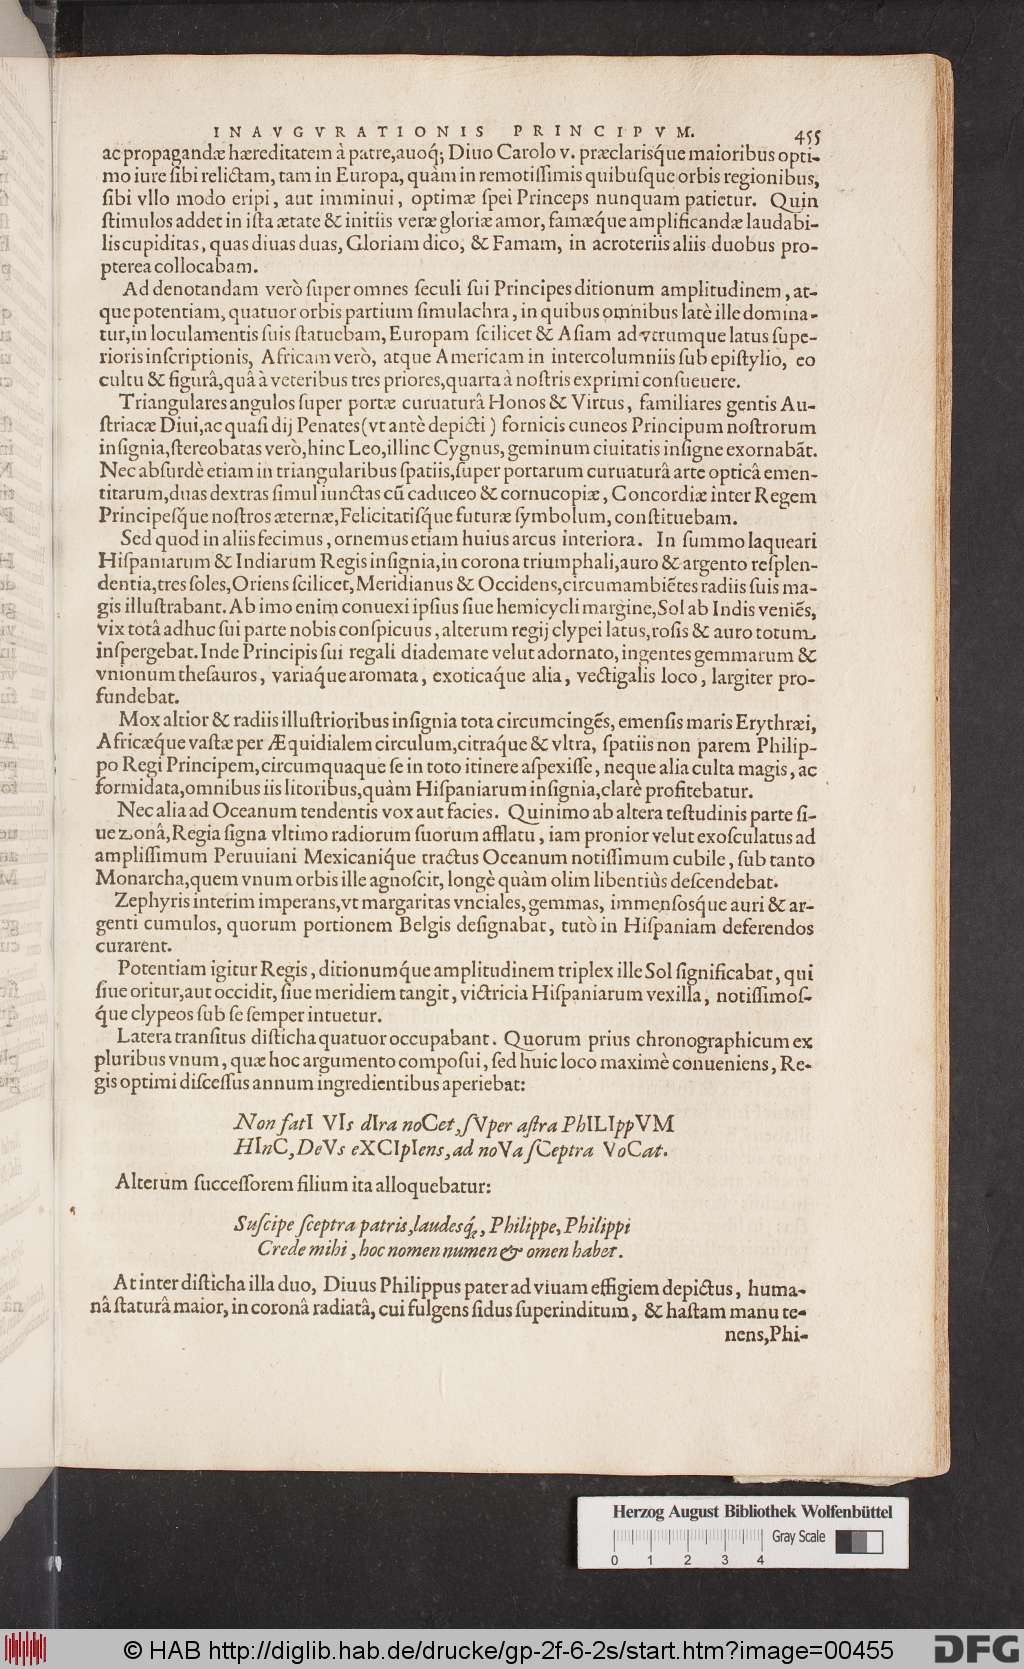 INAVGVRATIONIS PRINCIPVM. 455
ac propagandæ hæreditatem à patre, auoq́; Diuo Carolo v. præclarisq́ue maioribus opti-
mo iure ſibi relictam, tam in Europa, quàm in remotiſſimis quibuſque orbis regionibus,
ſibi vllo modo eripi, aut imminui, optimæ ſpei Princeps nunquam patietur. Quin
ſtimulos addet in iſta ætate & initiis veræ gloriæ amor, famæq́ue amplificandæ laudabi-
lis cupiditas, quas diuas duas, Gloriam dico, & Famam, in acroteriis aliis duobus pro-
pterea collocabam.
Ad denotandam verò ſuper omnes ſeculi ſui Principes ditionum amplitudinem, at-
que potentiam, quatuor orbis partium ſimulachra, in quibus omnibus latè ille domina-
tur, in loculamentis ſuis ſtatuebam, Europam ſcilicet & Aſiam ad vtrumque latus ſupe-
rioris inſcriptionis, Africam verò, atque Americam in intercolumniis ſub epiſtylio, eo
cultu & figurâ, quâ à veteribus tres priores, quarta à noſtris exprimi conſueuere.
Triangulares angulos ſuper portæ curuaturâ Honos & Virtus, familiares gentis Au-
ſtriacæ Diui, ac quaſi dij Penates (vt antè depicti) fornicis cuneos Principum noſtrorum
inſignia, ſtereobatas verò, hinc Leo, illinc Cygnus, geminum ciuitatis inſigne exornabāt.
Nec abſurdè etiam in triangularibus ſpatiis, ſuper portarum curuaturâ arte opticâ emen-
titarum, duas dextras ſimul iunctas cū caduceo & cornucopiæ, Concordiæ inter Regem
Principeſq́ue noſtros æternæ, Felicitatiſq́ue futuræ ſymbolum, conſtituebam.
Sed quod in aliis fecimus, ornemus etiam huius arcus interiora. In ſummo laqueari
Hiſpaniarum & Indiarum Regis inſignia, in corona triumphali, auro & argento reſplen-
dentia, tres ſoles, Oriens ſcilicet, Meridianus & Occidens, circumambiētes radiis ſuis ma-
gis illuſtrabant. Ab imo enim conuexi ipſius ſiue hemicycli margine, Sol ab Indis veniēs,
vix totâ adhuc ſui parte nobis conſpicuus, alterum regij clypei latus, roſis & auro totum
inſpergebat. Inde Principis ſui regali diademate velut adornato, ingentes gemmarum &
vnionum theſauros, variaq́ue aromata, exoticaq́ue alia, vectigalis loco, largiter pro-
fundebat.
Mox altior & radiis illuſtrioribus inſignia tota circumcingēs, emenſis maris Erythræi,
Africæq́ue vaſtæ per Æquidialem circulum, citraq́ue & vltra, ſpatiis non parem Philip-
po Regi Principem, circumquaque ſe in toto itinere aſpexiſſe, neque alia culta magis, ac
formidata, omnibus iis litoribus, quàm Hiſpaniarum inſignia, clarè profitebatur.
Nec alia ad Oceanum tendentis vox aut facies. Quinimo ab altera teſtudinis parte ſi-
ue zonâ, Regia ſigna vltimo radiorum ſuorum afflatu, iam pronior velut exoſculatus ad
ampliſſimum Peruuiani Mexicaniq́ue tractus Oceanum notiſſimum cubile, ſub tanto
Monarcha, quem vnum orbis ille agnoſcit, longè quàm olim libentiùs deſcendebat.
Zephyris interim imperans, vt margaritas vnciales, gemmas, immenſosq́ue auri & ar-
genti cumulos, quorum portionem Belgis deſignabat, tutò in Hiſpaniam deferendos
curarent.
Potentiam igitur Regis, ditionumq́ue amplitudinem triplex ille Sol ſignificabat, qui
ſiue oritur, aut occidit, ſiue meridiem tangit, victricia Hiſpaniarum vexilla, notiſſimoſ-
q́ue clypeos ſub ſe ſemper intuetur.
Latera tranſitus diſticha quatuor occupabant. Quorum prius chronographicum ex
pluribus vnum, quæ hoc argumento compoſui, ſed huic loco maximè conueniens, Re-
gis optimi diſceſſus annum ingredientibus aperiebat:
Non fatI VIs dIra noCet, ſVper aſtra PhILIppVM
HInC, DeVs eXCIpIens, ad noVa ſCeptra VoCat.
Alterum ſucceſſorem filium ita alloquebatur:
Suſcipe ſceptra patris, laudesq́;, Philippe, Philippi
Crede mihi, hoc nomen numen & omen habet.
At inter diſticha illa duo, Diuus Philippus pater ad viuam effigiem depictus, huma-
nâ ſtaturâ maior, in coronâ radiatâ, cui fulgens ſidus ſuperinditum, & haſtam manu te-
nens, Phi-
Herzog August Bibliothek Wolfenbüttel
Gray Scale
0 1 2 3 4
© HAB http://diglib.hab.de/drucke/gp-2f-6-2s/start.htm?image=00455
DFG